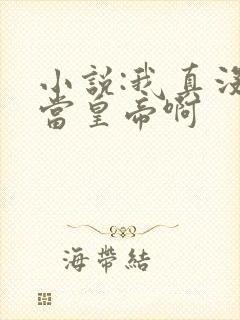 小說:我真沒
當皇帝啊
海帶結